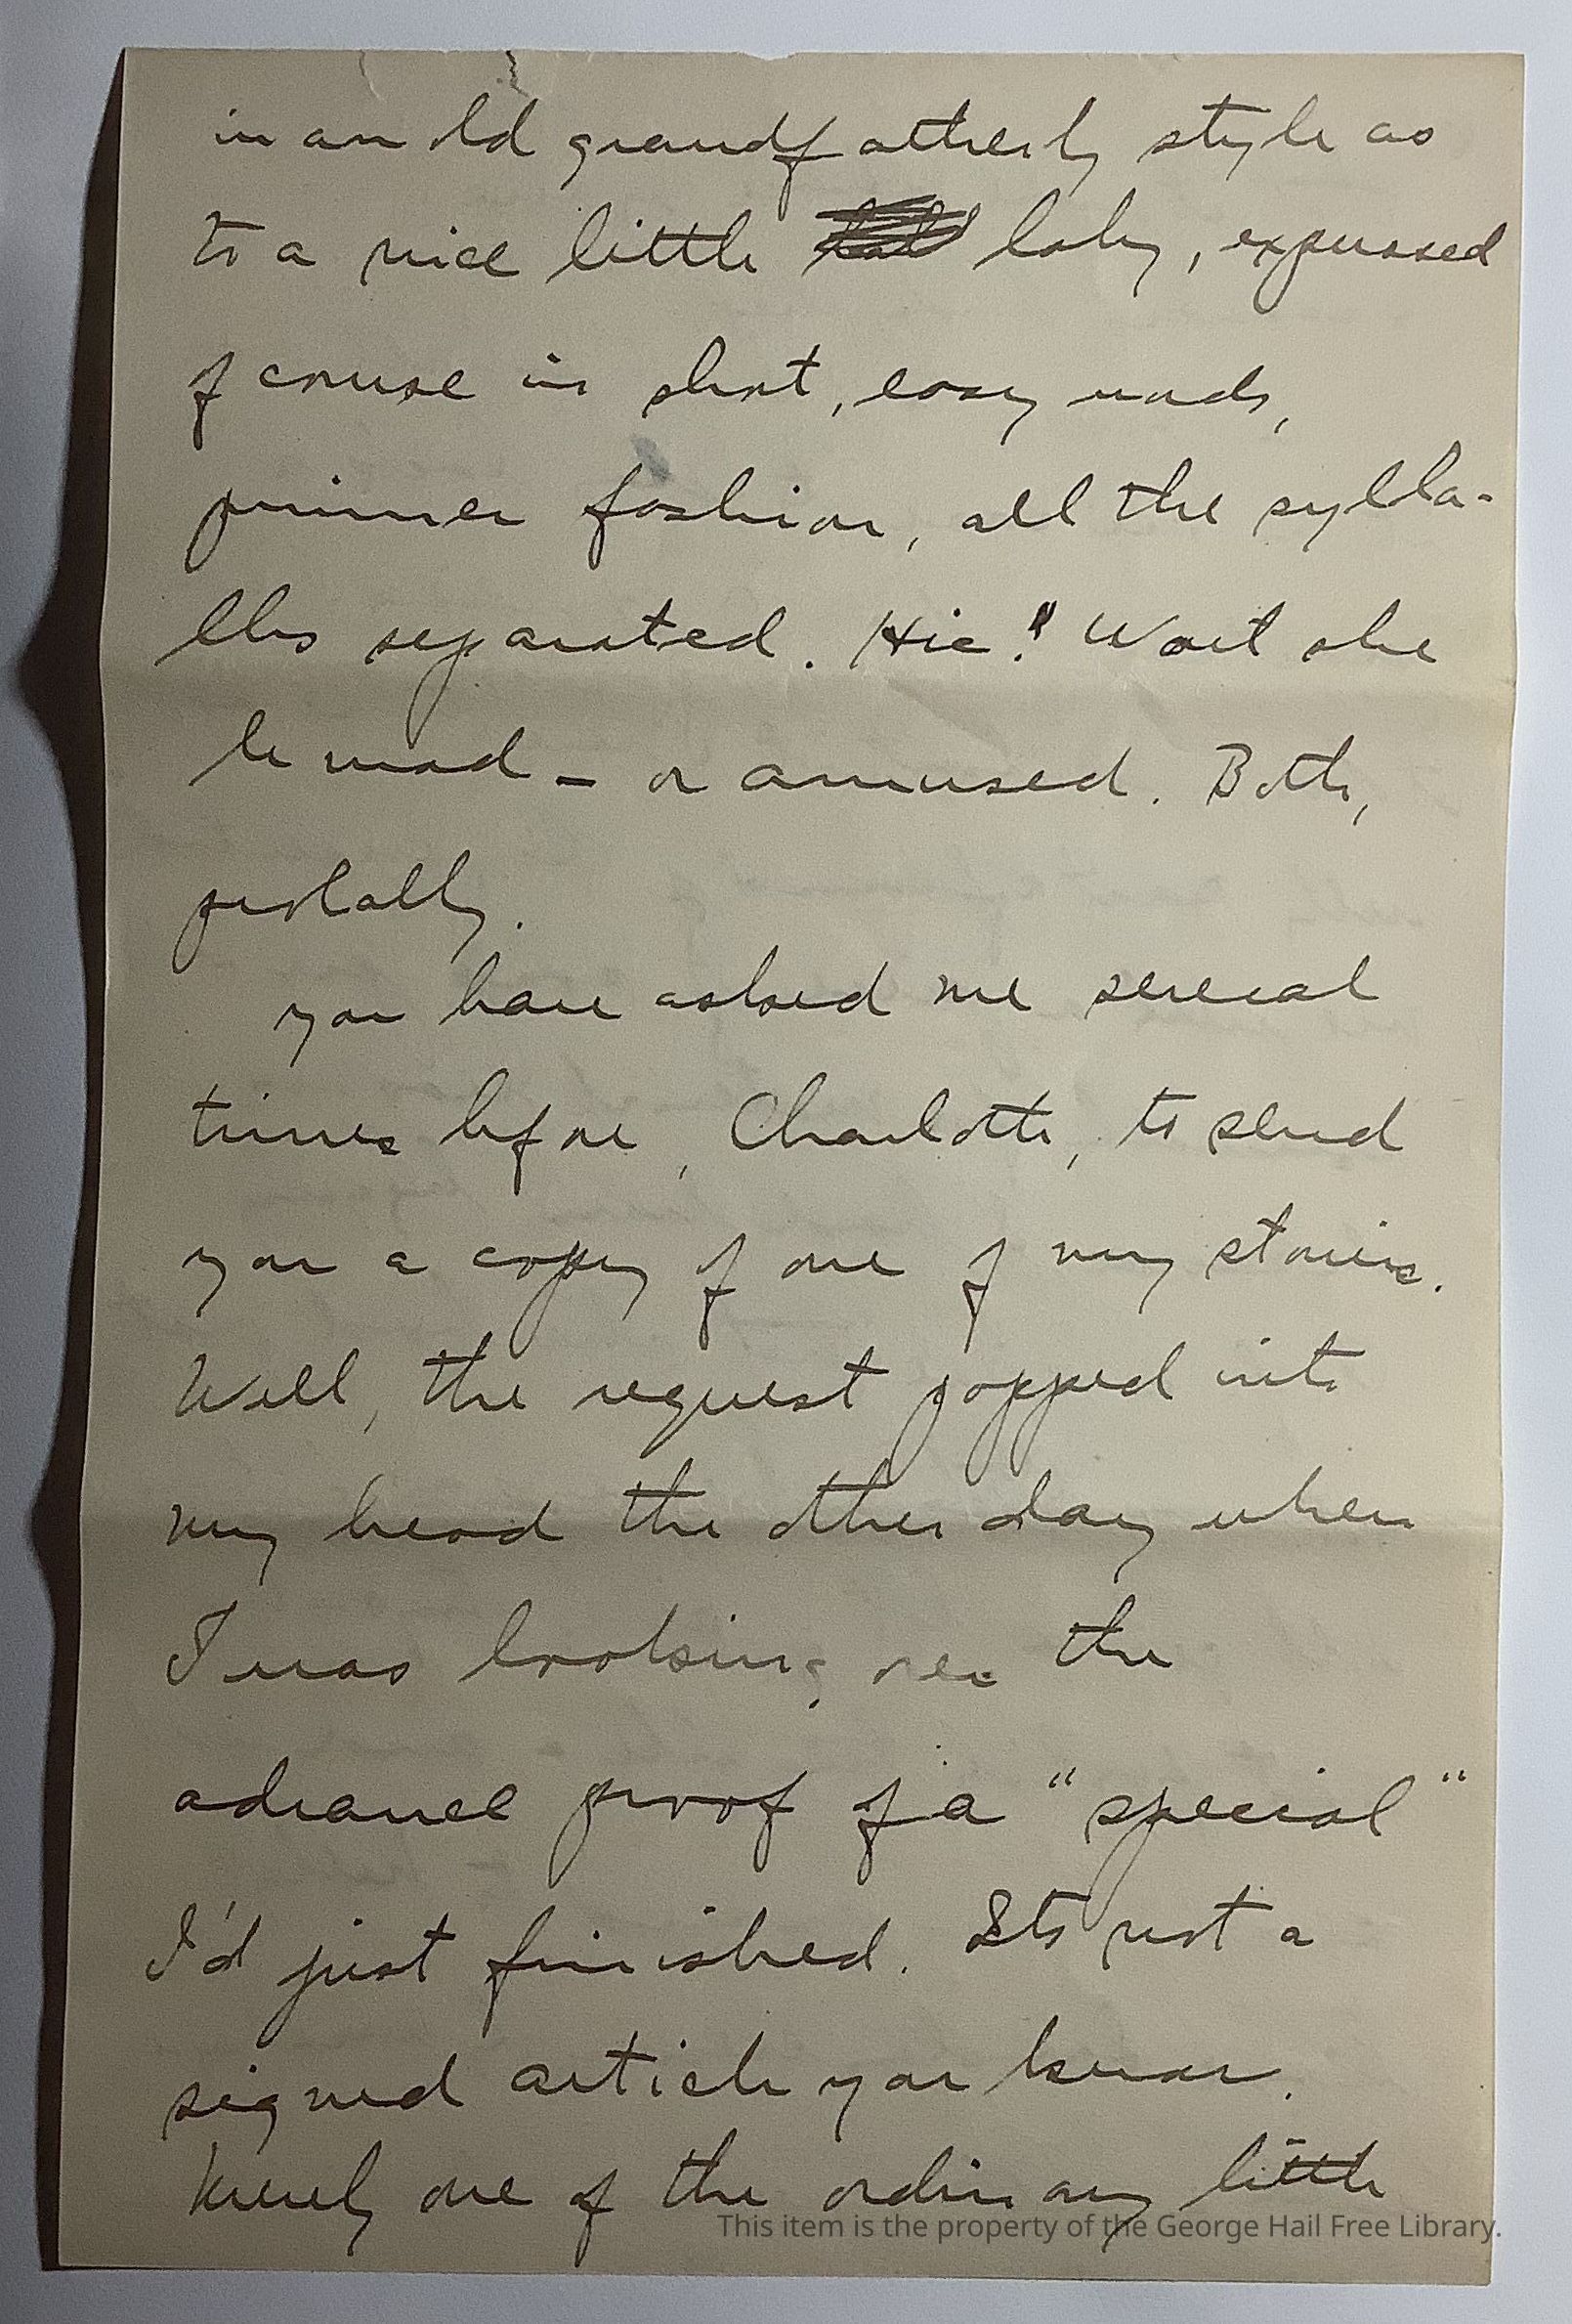 in an old grandfatherly style as
to a nice little baby, expressed
of course in short, easy words,
primer fashion, all the sylla-
bles separated. Hic! Won't she
be mad – or amused. Both,
probably.
You have asked me several
times before, Charlotte, to send
you a copy of one of my stories.
Well, the request popped into
my head the other day when
I was looking over the
advance proof of a "special"
I'd just finished. Its not a
signed article you know.
Merely one of the ordinary little
This item is the property of the George Hail Free Library.